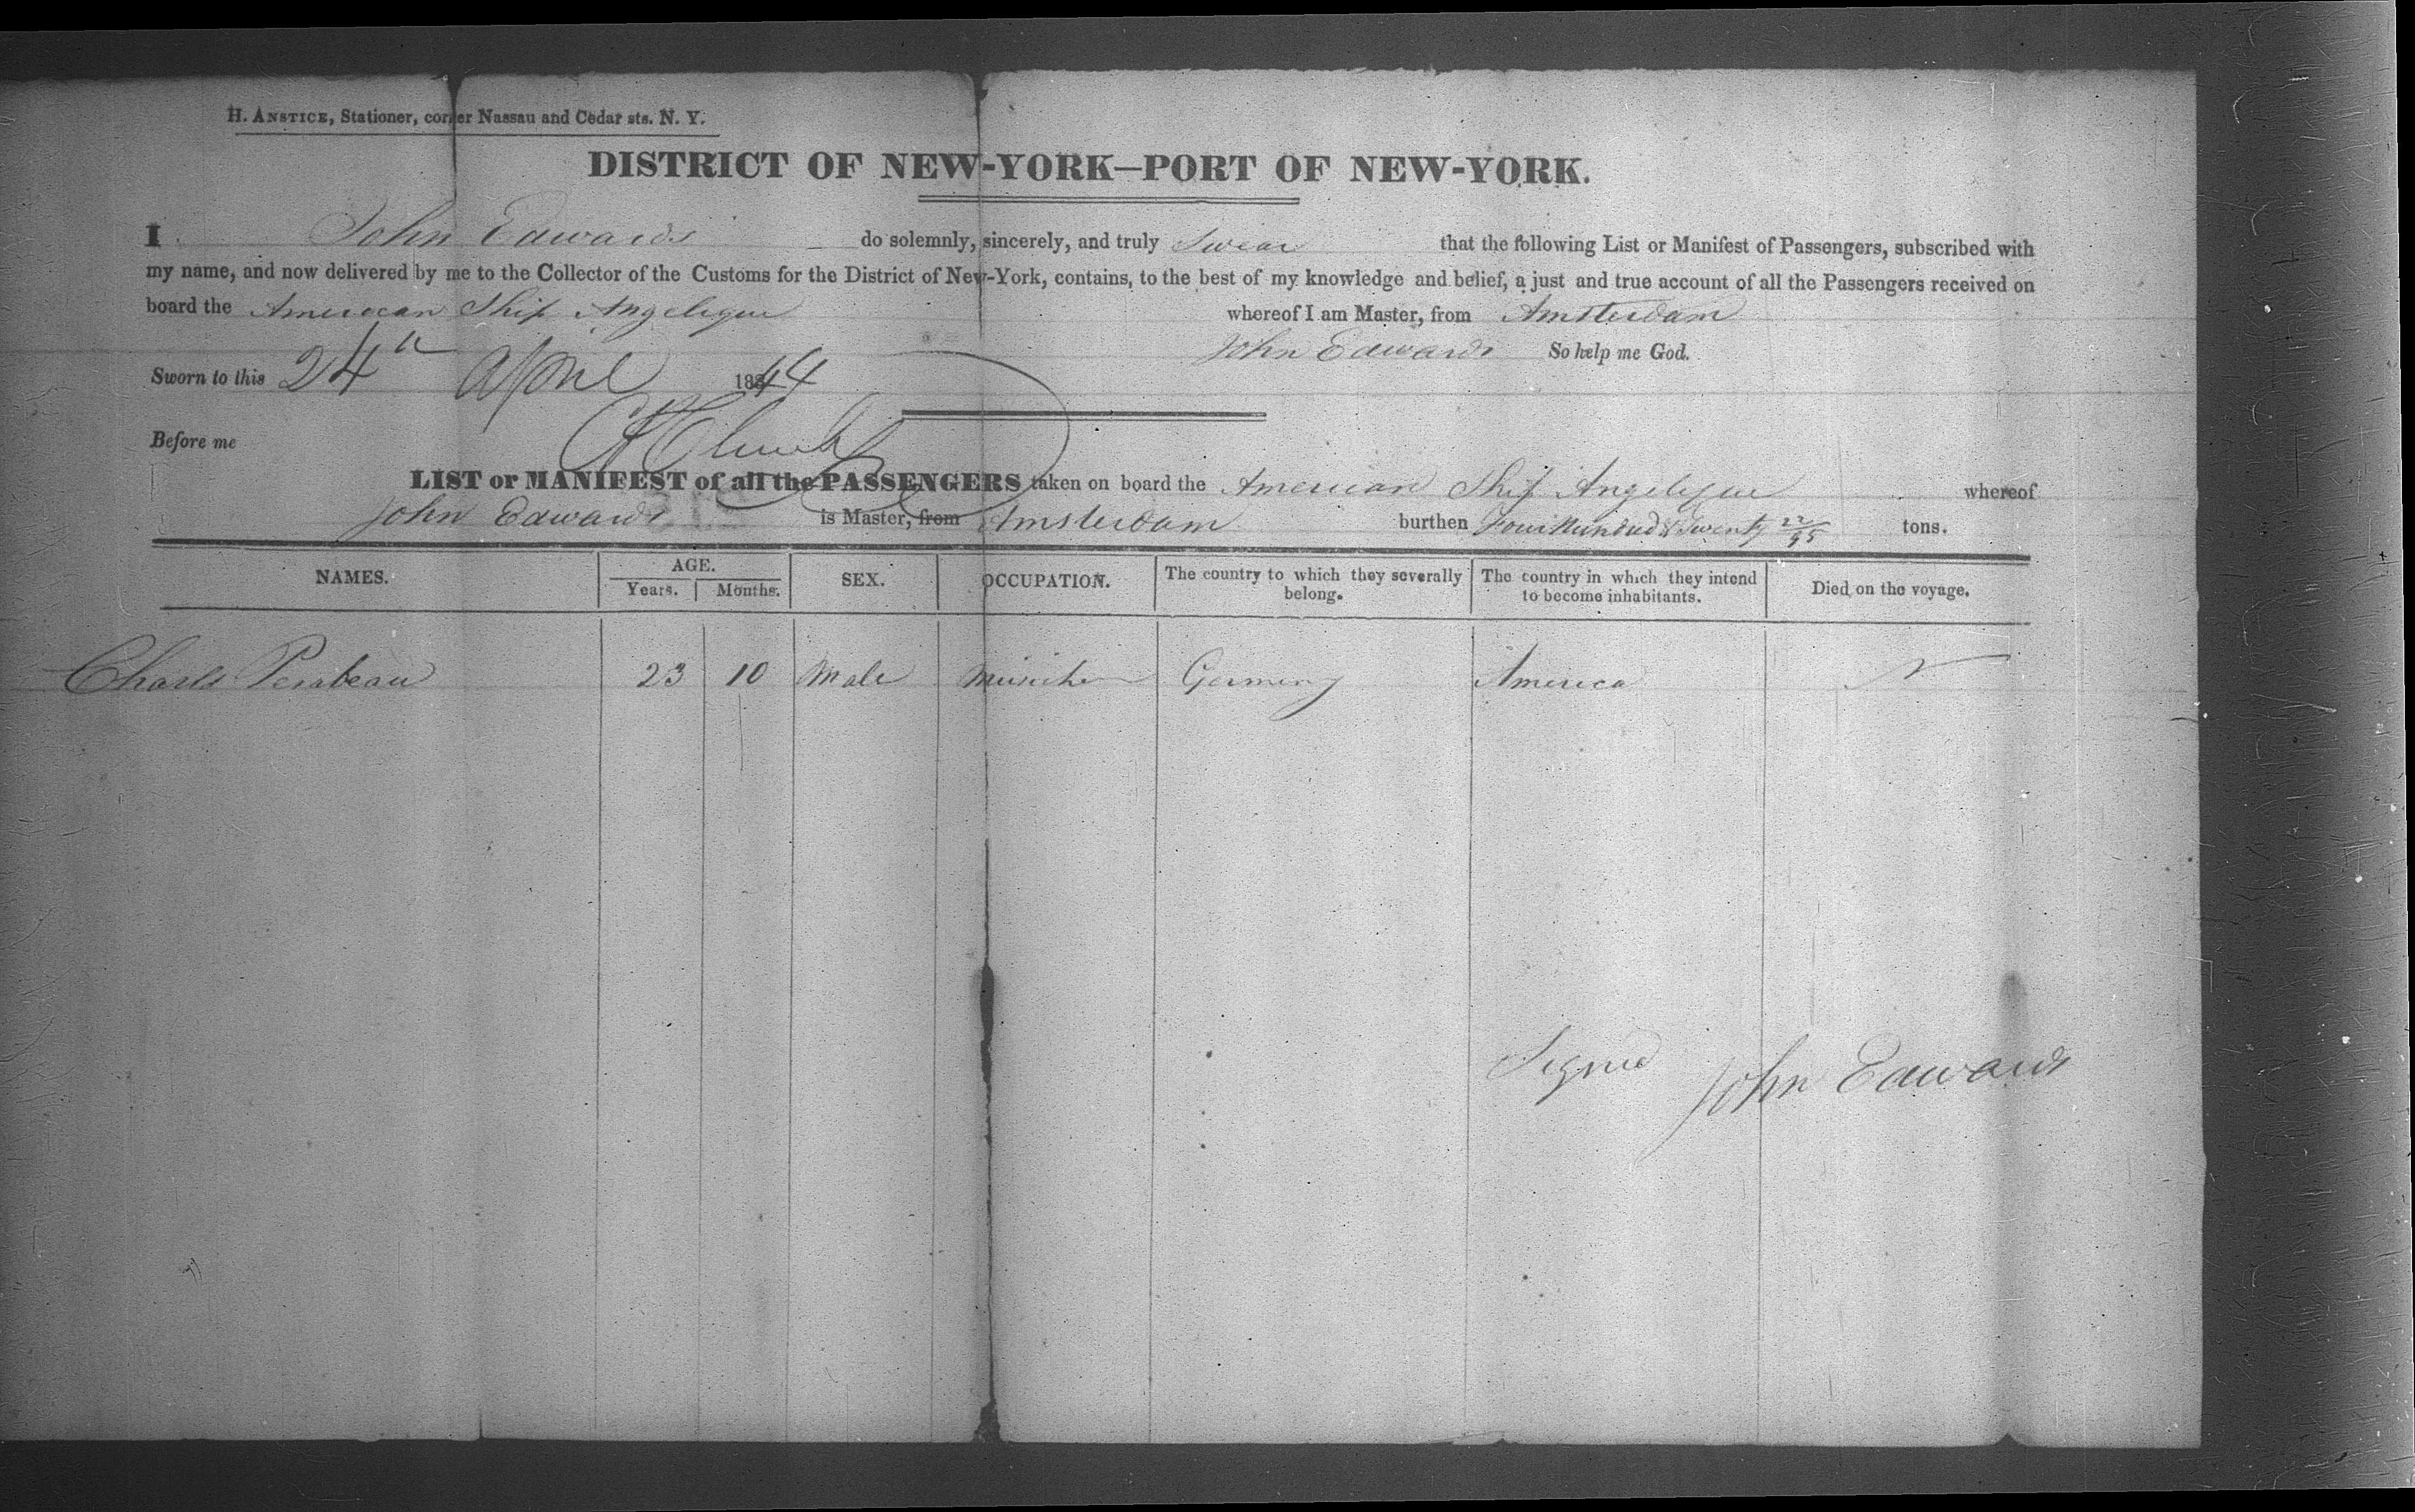 H. ANSTICE, Stationer, corner Nassau and Cedar sts. N. Y.
DISTRICT OF NEW-YORK—PORT OF NEW-YORK.
I John Edwards do solemnly, sincerely, and truly Swear that the following List or Manifest of Passengers, subscribed with
my name, and now delivered by me to the Collector of the Customs for the District of New-York, contains, to the best of my knowledge and belief, a just and true account of all the Passengers received on
board the American Ship Angelique whereof I am Master, from Amsterdam
John Edwards So help me God.
Sworn to this 24th April 1844
Before me
LIST or MANIFEST of all the PASSENGERS taken on board the American Ship Angelique whereof
John Edwards is Master, from Amsterdam burthen Four Hundred & Twenty 22/95 tons.
NAMES. AGE. Years. Months. SEX. OCCUPATION. The country to which they severally belong. The country in which they intend to become inhabitants. Died on the voyage.
Charles Perabeau 23 10 Male Germany America
Signed John Edwards